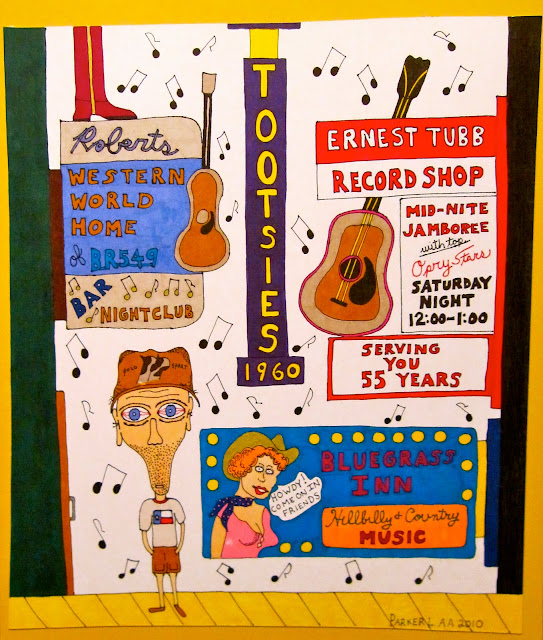 Roberts
WESTERN
WORLD
HOME
of BR549
BAR
NIGHTCLUB
TOOTSIES
1960
ERNEST TUBB
RECORD SHOP
MID-NITE
JAMBOREE
with top
Opry Stars
SATURDAY
NIGHT
12:00-1:00
SERVING
YOU
55 YEARS
POLO SPORT
HOWDY!
COME ON IN
FRIENDS
BLUEGRASS
INN
Hillbilly & Country
MUSIC
PARKER L AA 2010